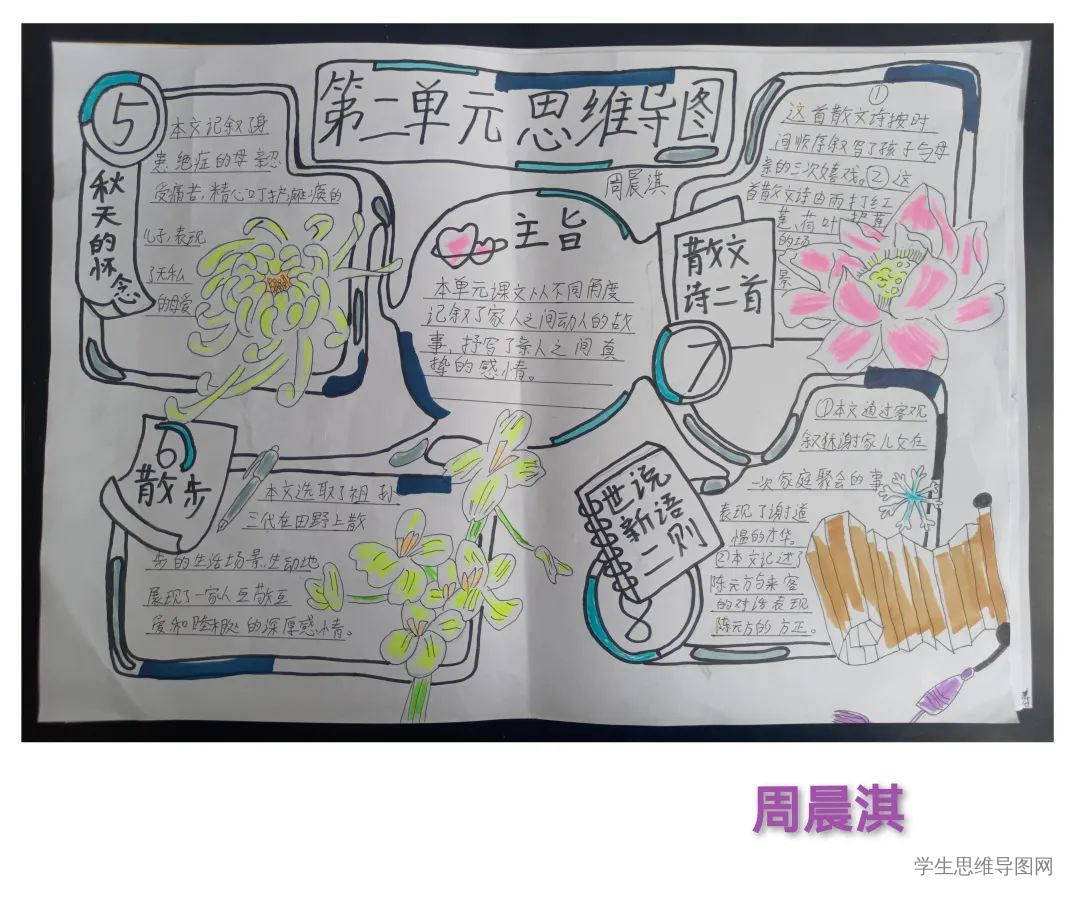 第二单元思维导图
周晨淇
主旨
本单元课文从不同角度
记叙了家人之间动人的故
事，抒写了亲人之间真
挚的感情。
5
秋天的怀念
本文记叙了身
患绝症的母亲忍
受痛苦，精心呵护瘫痪的
儿子，表现
了无私
的母爱
6
散步
本文选取了祖孙
三代在田野上散
步的生活场景，生动地
展现了一家人互敬互
爱和 的深厚感情。
7
散文
诗二首
①
这首散文诗按时
间顺序叙写了孩子与母
亲的三次嬉戏。②这
首散文诗由雨打红
莲、荷叶
的场
景
8
世说
新语
二则
①本文通过客观
叙述谢家儿女在
一次家庭聚会的事
表现了谢道
韫的才华。
②本文记述了
陈元方与来客
的对话表现
陈元方的方正。
周晨淇
学生思维导图网